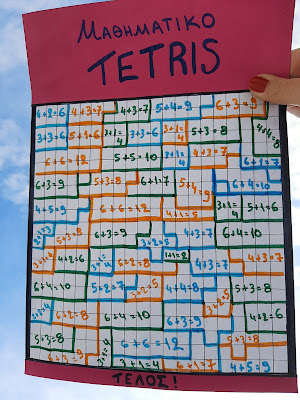 ΜΑΘΗΜΑΤΙΚΟ
TETRIS
4+2=6 4+3=7 4+3=7 5+4=9 6+3=9
3+3=6 5+1=6 3+1=4 3+3=6 3+1=4 5+3=8 4+4=8
6+6=12 5+5=10 3+1=4 4+3=7 6+1=7
6+3=9 5+3=8 6+1=7 5+4=9 6+4=10
4+5=9 6+6=12 4+1=5 3+1=4 5+1=6
5+3=8 6+3=9 3+2=5 4+3=7 6+4=10
4+2=6 6+2=8 1+1=8 4+3=7 6+3=9
6+4=10 5+2=7 4+4=8 3+2=5 6+3=9
6+2=8 6+4=10 6+3=9 4+2=6
5+3=8 6+6=12 5+3=8
6+3=9 3+1=4 3+1=4 6+4=10 4+5=9
ΤΕΛΟΣ!